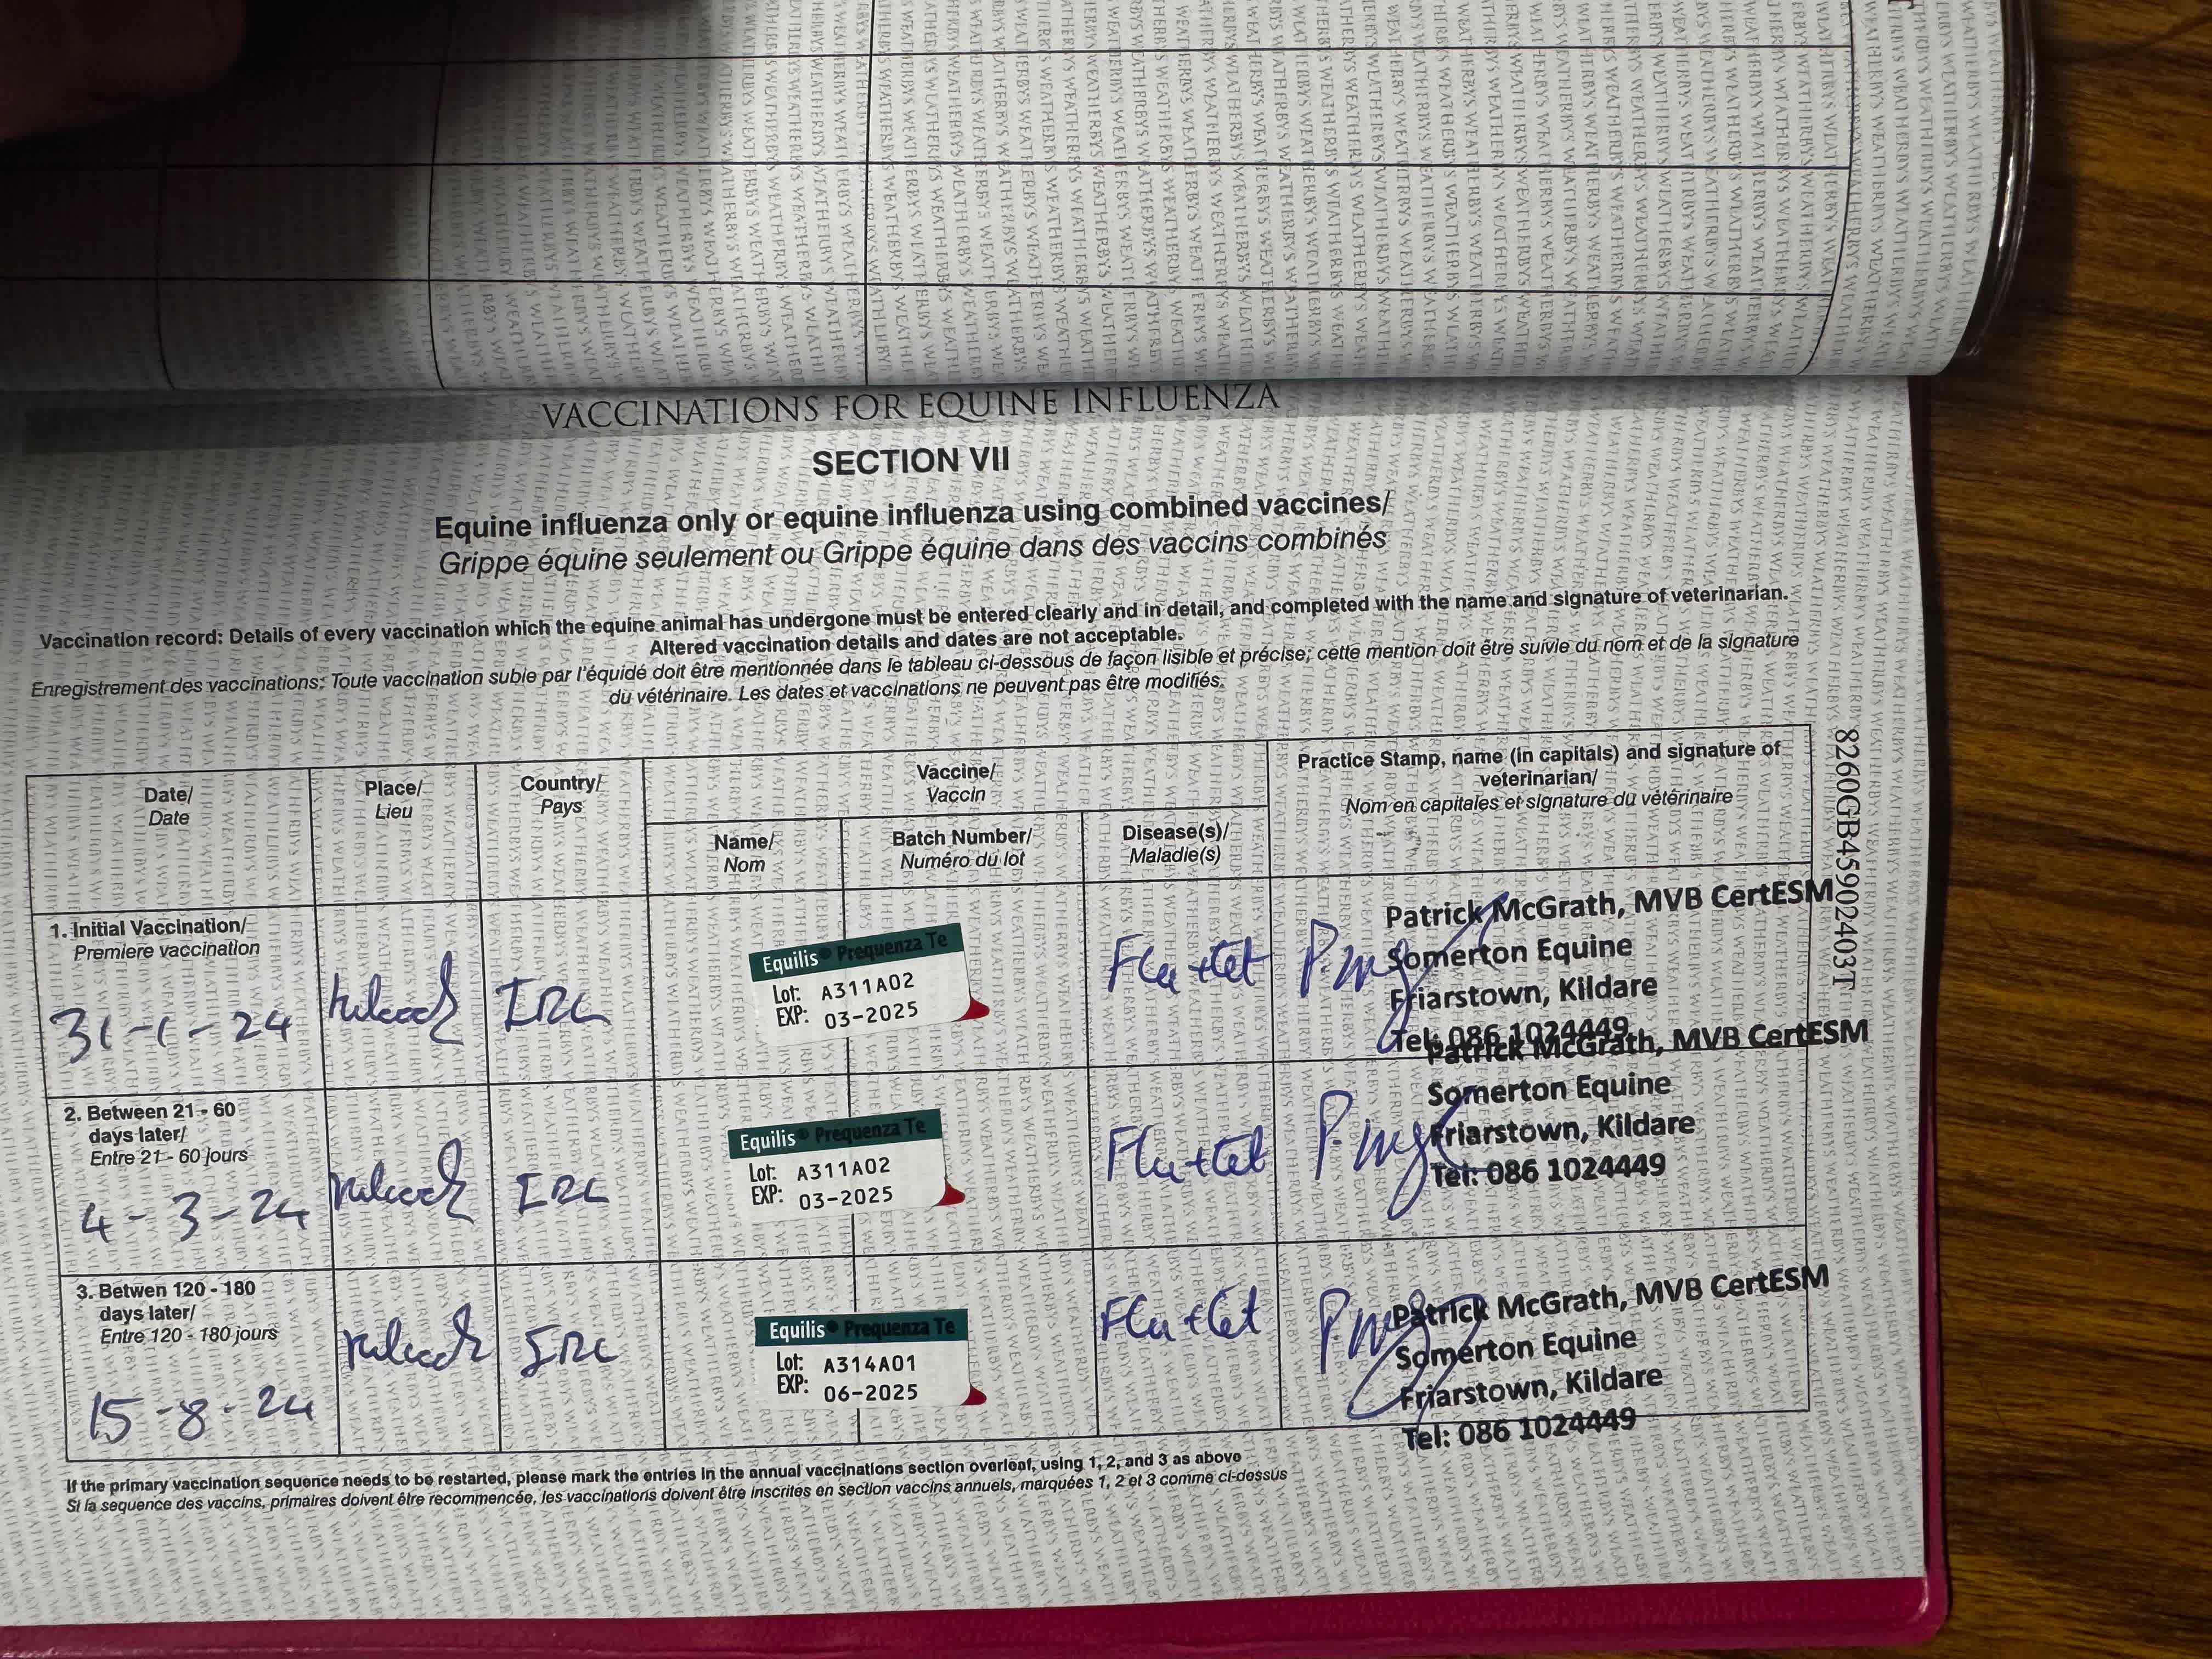 VACCINATIONS FOR EQUINE INFLUENZA
SECTION VII
Equine influenza only or equine influenza using combined vaccines/
Grippe équine seulement ou Grippe équine dans des vaccins combinés
Vaccination record: Details of every vaccination which the equine animal has undergone must be entered clearly and in detail, and completed with the name and signature of veterinarian.
Altered vaccination details and dates are not acceptable.
Enregistrement des vaccinations: Toute vaccination subie par l'équidé doit être mentionnée dans le tableau ci-dessous de façon lisible et précise; cette mention doit être suivie du nom et de la signature
du vétérinaire. Les dates et vaccinations ne peuvent pas être modifiés.
8260GB45902403T
Date/
Date
Place/
Lieu
Country/
Pays
Vaccine/
Vaccin
Name/
Nom
Batch Number/
Numéro du lot
Disease(s)/
Maladie(s)
Practice Stamp, name (in capitals) and signature of
veterinarian/
Nom en capitales et signature du vétérinaire
1. Initial Vaccination/
Premiere vaccination
31-1-24
IRL
Equilis® Prequenza Te
Lot: A311A02
EXP: 03-2025
Flu+tet
Patrick McGrath, MVB CertESM
Somerton Equine
Friarstown, Kildare
Tel: 086 1024449
2. Between 21 - 60
days later/
Entre 21 - 60 jours
4-3-24
IRL
Equilis® Prequenza Te
Lot: A311A02
EXP: 03-2025
Flu+tet
Patrick McGrath, MVB CertESM
Somerton Equine
Friarstown, Kildare
Tel: 086 1024449
3. Betwen 120 - 180
days later/
Entre 120 - 180 jours
15-8-24
IRL
Equilis® Prequenza Te
Lot: A314A01
EXP: 06-2025
Flu+tet
Patrick McGrath, MVB CertESM
Somerton Equine
Friarstown, Kildare
Tel: 086 1024449
If the primary vaccination sequence needs to be restarted, please mark the entries in the annual vaccinations section overleaf, using 1, 2, and 3 as above
Si la sequence des vaccins, primaires doivent être recommencée, les vaccinations doivent être inscrites en section vaccins annuels, marquées 1, 2 et 3 comme ci-dessus